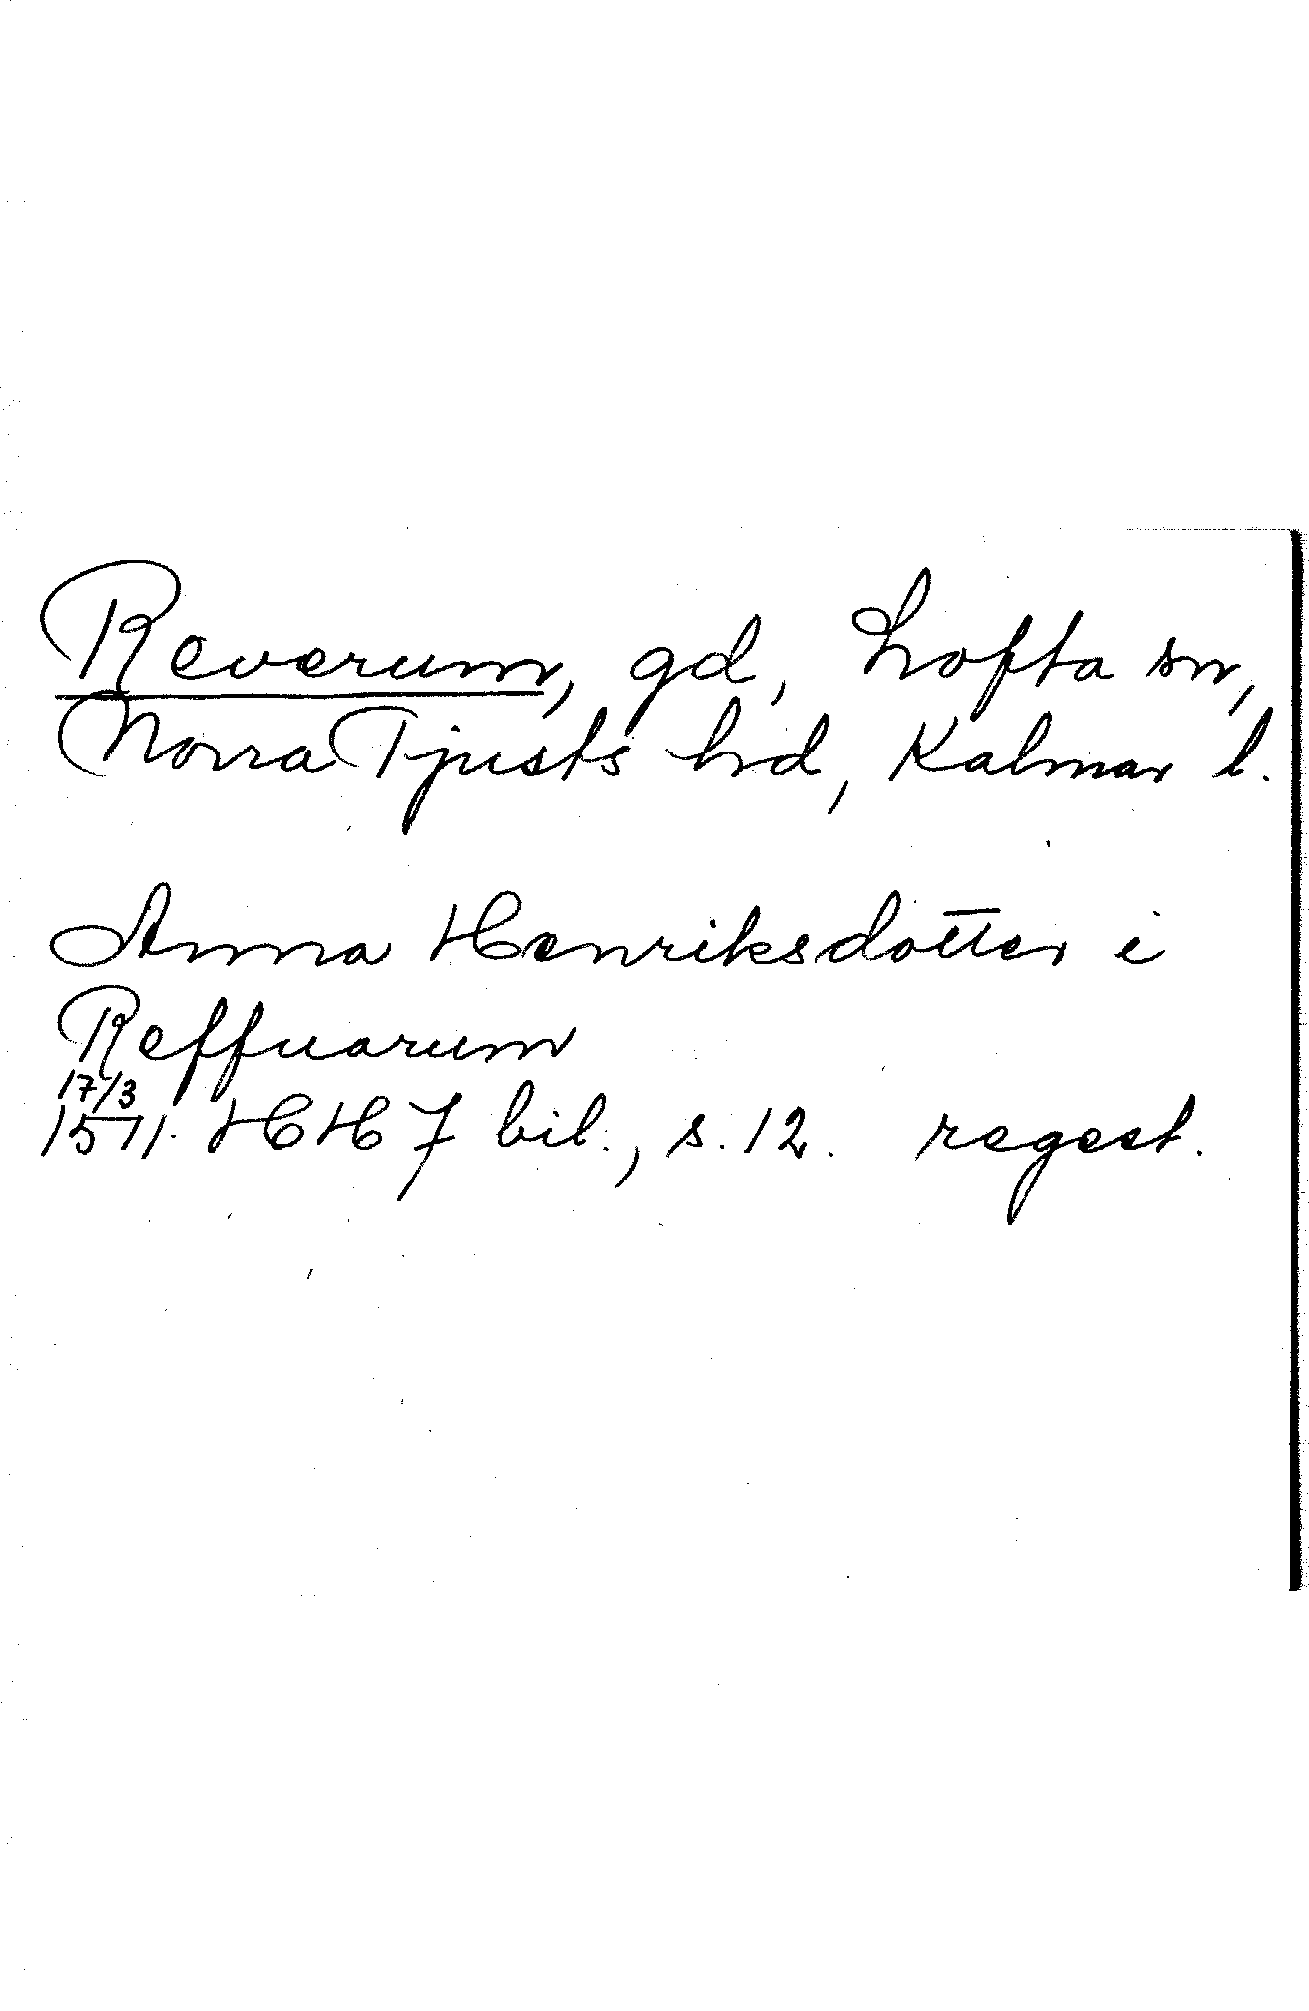 Reverum, gd, Lofta sn,
Norra Tjusts hd, Kalmar l.
Anna Henriksdotter i
Reffuarum
17/3
1511. HH 7 bil., s. 12. regest.